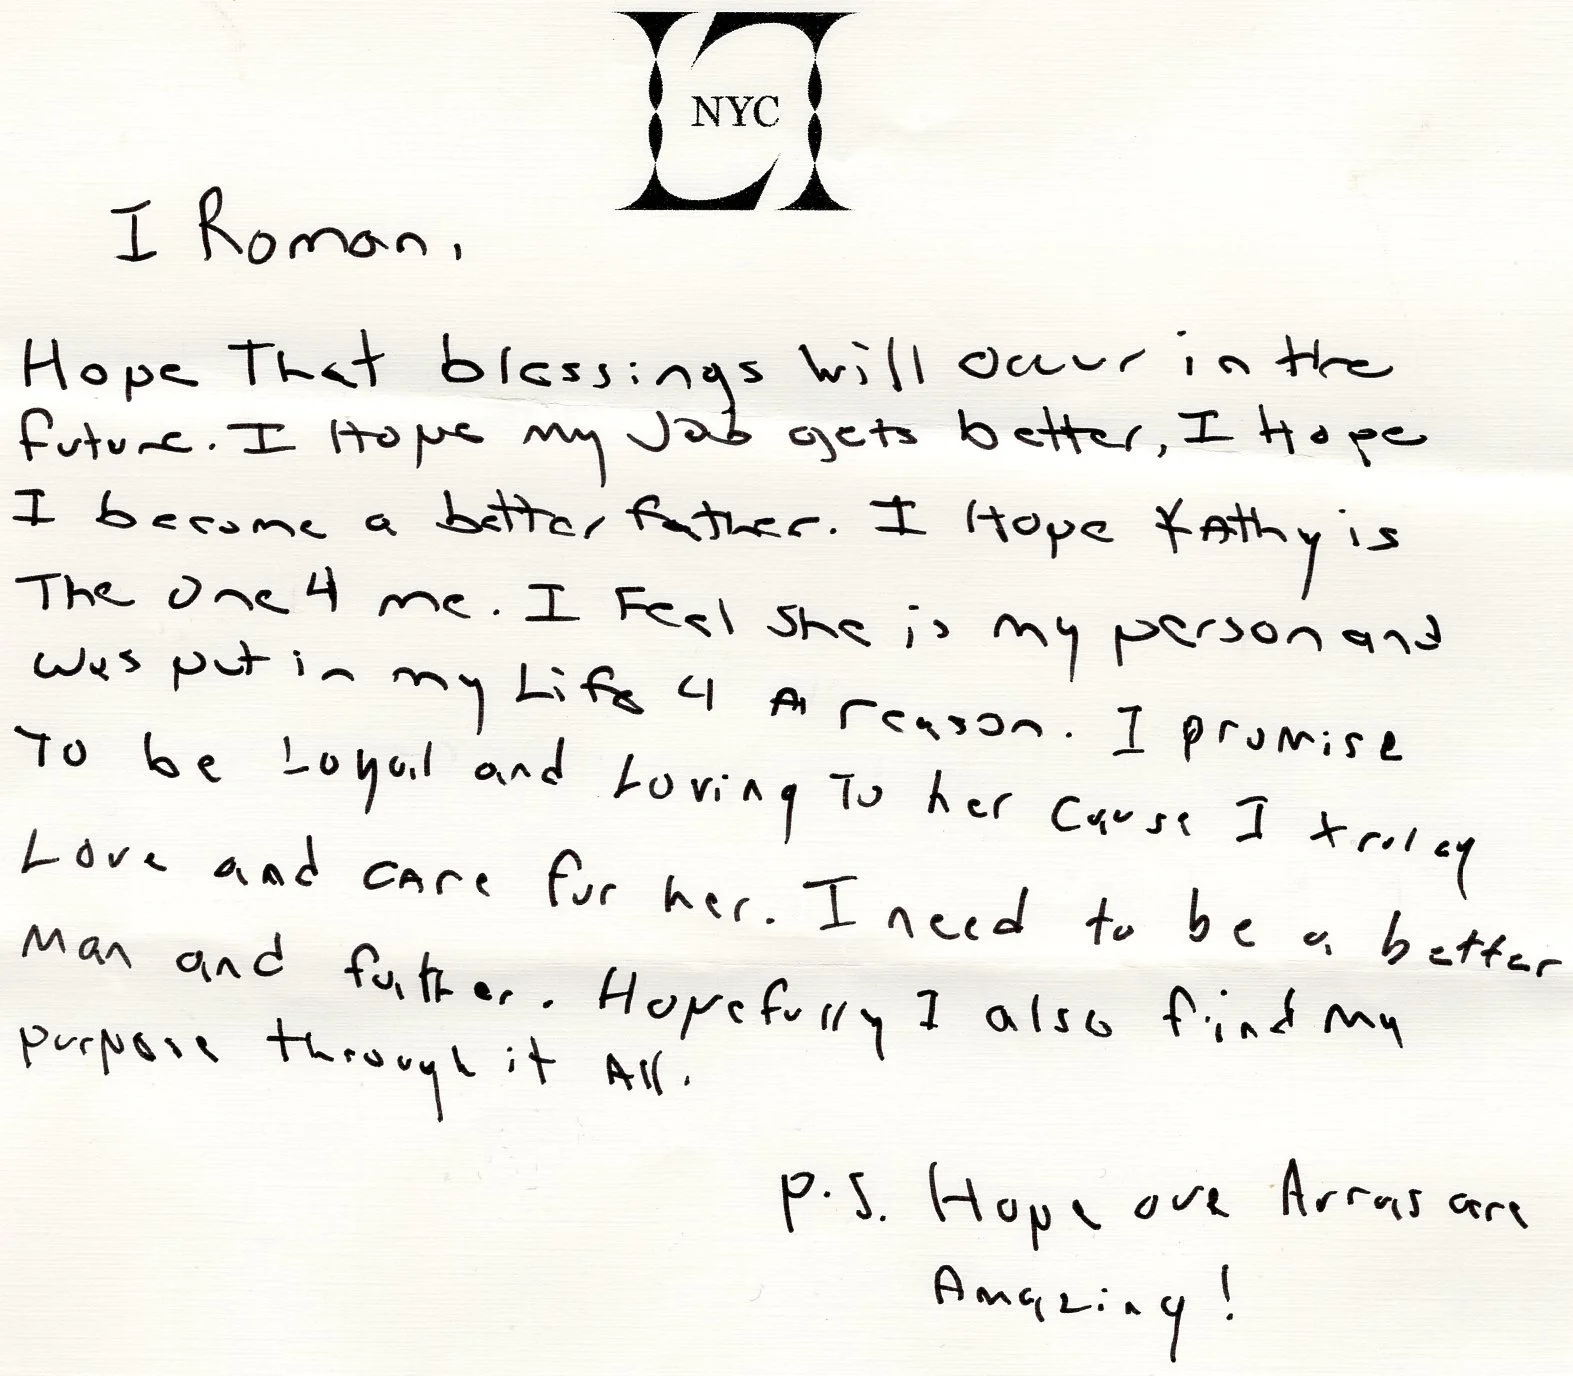 NYC
I Roman,
Hope That blessings will occur in the
future. I Hope my Job gets better, I Hope
I become a better father. I Hope KAthy is
The One 4 me. I Feel She is my person and
was put in my Life 4 A reason. I promise
To be Loyal and Loving To her Cause I truley
Love and CAre for her. I need to be a better
Man and father. Hopefully I also find my
purpose through it All.
P.S. Hope our Arras are
Amazing!